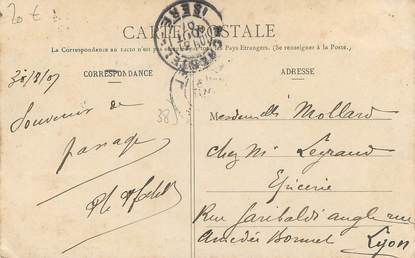 20 t
CARTE POSTALE
La Correspondance au recto n'est pas Pays Etrangers. (Se renseigner à la Poste.)
CORRESPONDANCE
ADRESSE
ISERE
Souvenir de
passage
385
Mesdemelles Mollard
chez Mr Legrand
Epicerie
Rue Garibaldi angle rue
Amédée Bonnet
Lyon